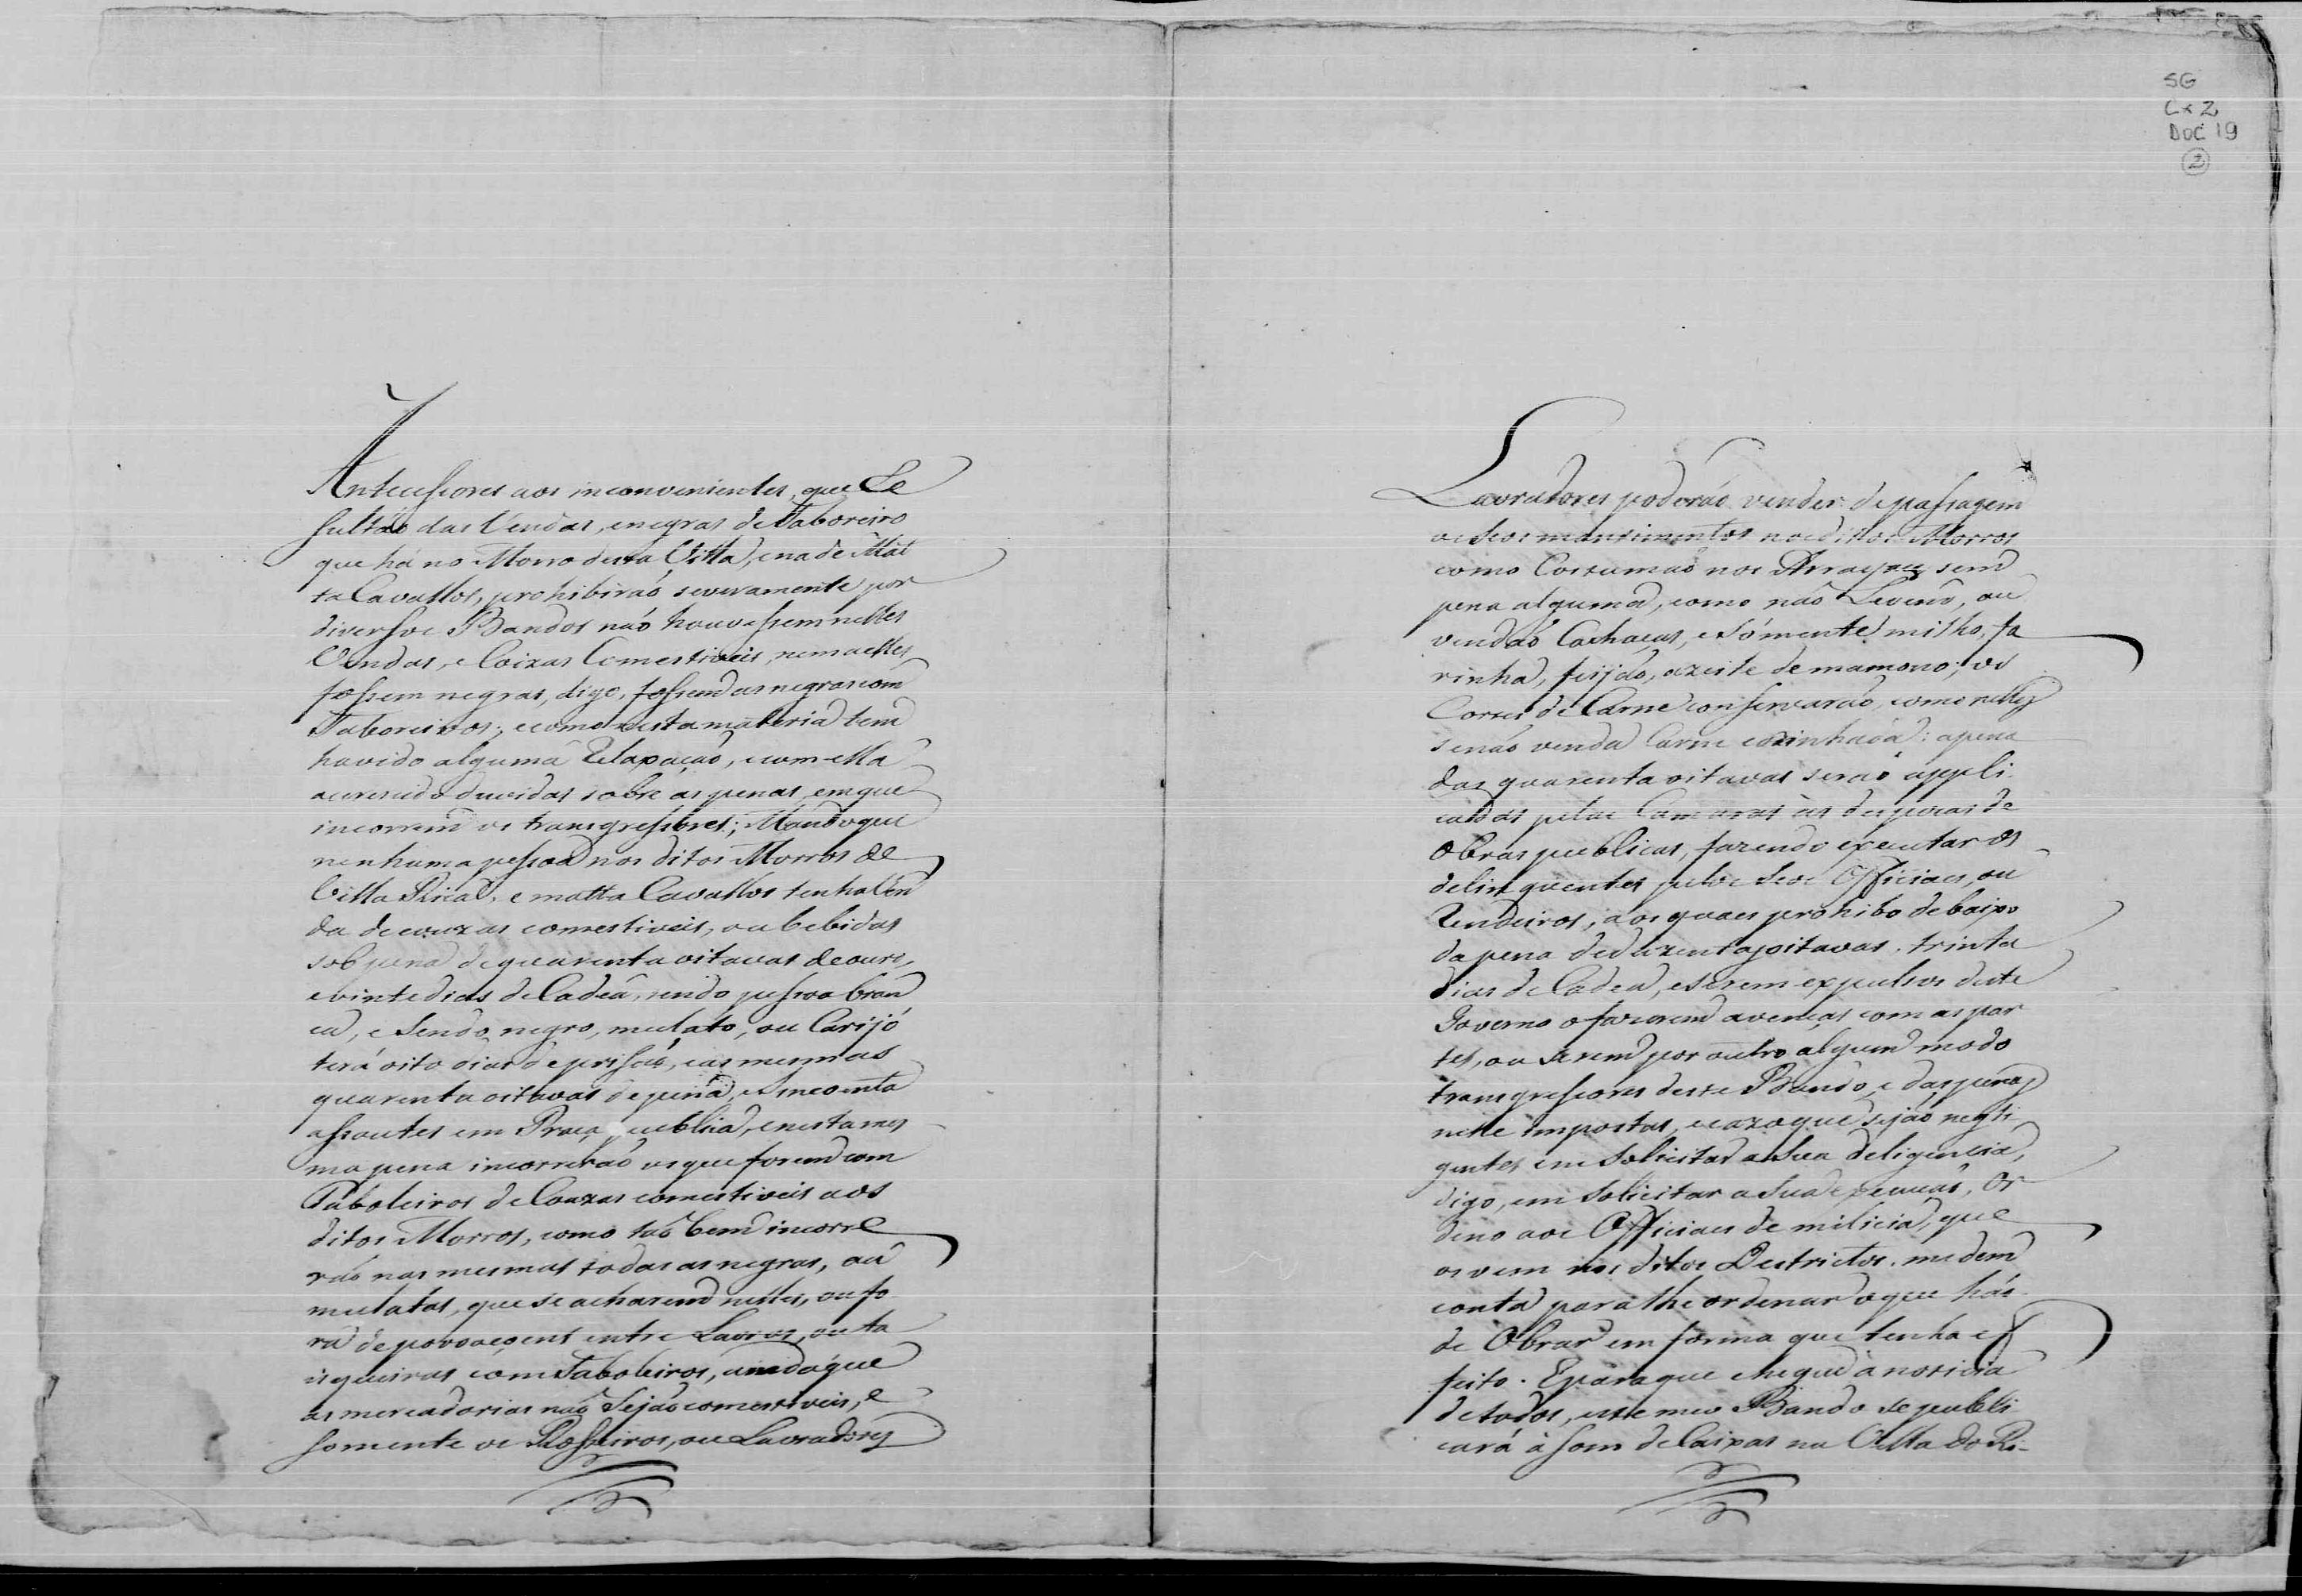 Antecessores aos inconvenientes, que Re
sultão das Vendas, e negras de Taboreiro
que há no Morro desta Villa, e na de Mat
ta Cavallos, prohibiráo severamente por
diversos Bandos não houvessem nelles
Vendas, e Coizas Comestiveis, nem a elles
fossem negras, digo, fossem as negras com
Taboreiros; e como nesta materia tem
havido alguma Relaxação, e com ella
acrescido duvidas sobre as penas, em que
incorrem os transgressores; Mando que
nenhuma pessoa nos ditos Morros de
Villa Rica, e matta Cavallos tenha Ven
da de couzas comestiveis, ou bebidas
sob pena de quarenta oitavas de ouro,
e vinte dias de Cadeâ, sendo pessoa bran
ca, e Sendo negro, mulato, ou Carijó
terá oito dias de prisão, e as mesmas
quarenta oitavas de pena, e sincoenta
assoutes em Praça publica, e nesta mes
ma pena incorrerão os que forem com
Taboleiros de Couzas comestiveis aos
ditos Morros, como tão bem incorre
rão nas mesmas todas as negras, ou
mulatas, que se acharem nelles, ou fo
ra de povoaçoens entre Lavras, ou fa
isqueiras com Taboleiros, ainda que
as mercadorias não Sejão comestiveis, e
somente os Rosseiros, ou Lavradores
SG
Cx 2
Doc 19
2
Lavradores poderáo vender de passagem
os Seos mantimentos nos ditos Morros
como Costumão nos Arrayaes sem
pena alguma, como não Levem, ou
vendão Cachaças, e Sómente milho, fa
rinha, feijão, azeite de mamono; os
Cortes de Carne conservarão, como nelles
se não venda Carne cozinhada: a pena
das quarenta oitavas serão appli
cadas pelas Camaras às despezas de
Obras publicas, fazendo executar os
delinquentes pelos Seos Officiaes, ou
Rendeiros, aos quaes prohibo debaixo
da pena de duzentas oitavas, trinta
dias de Cadea, e serem expulsos deste
Governo o fazerem avenças com as par
tes, ou serem por outro algum modo
transgressores deste Bando, e das penas
nelle impostas, e cazo que sejão negli
gentes em Solicitar a Sua deligencia,
digo, em Solicitar a Sua execução, Or
deno aos Officiaes de milicia, que
os vem nos ditos Destrictos, me dem
conta para lhe ordenar o que hão
de Obrar em forma que tenha ef
feito. E para que chegue à noticia
de todos, este meu Bando se publi
cará à Som de Caixas na Villa do Ri-